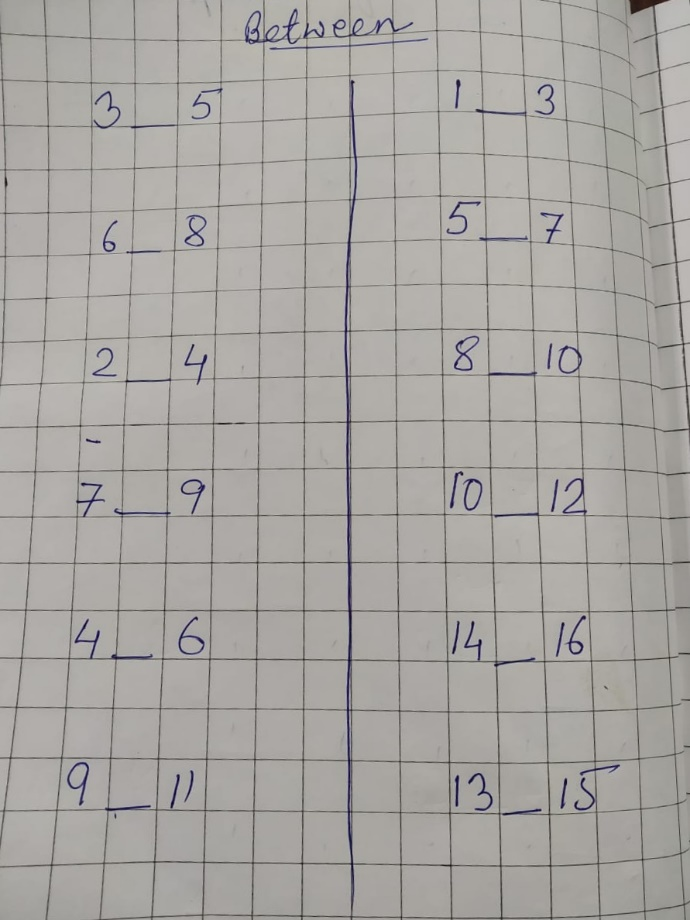 Between
3 __ 5
6 __ 8
2 __ 4
7 __ 9
4 __ 6
9 __ 11
1 __ 3
5 __ 7
8 __ 10
10 __ 12
14 __ 16
13 __ 15